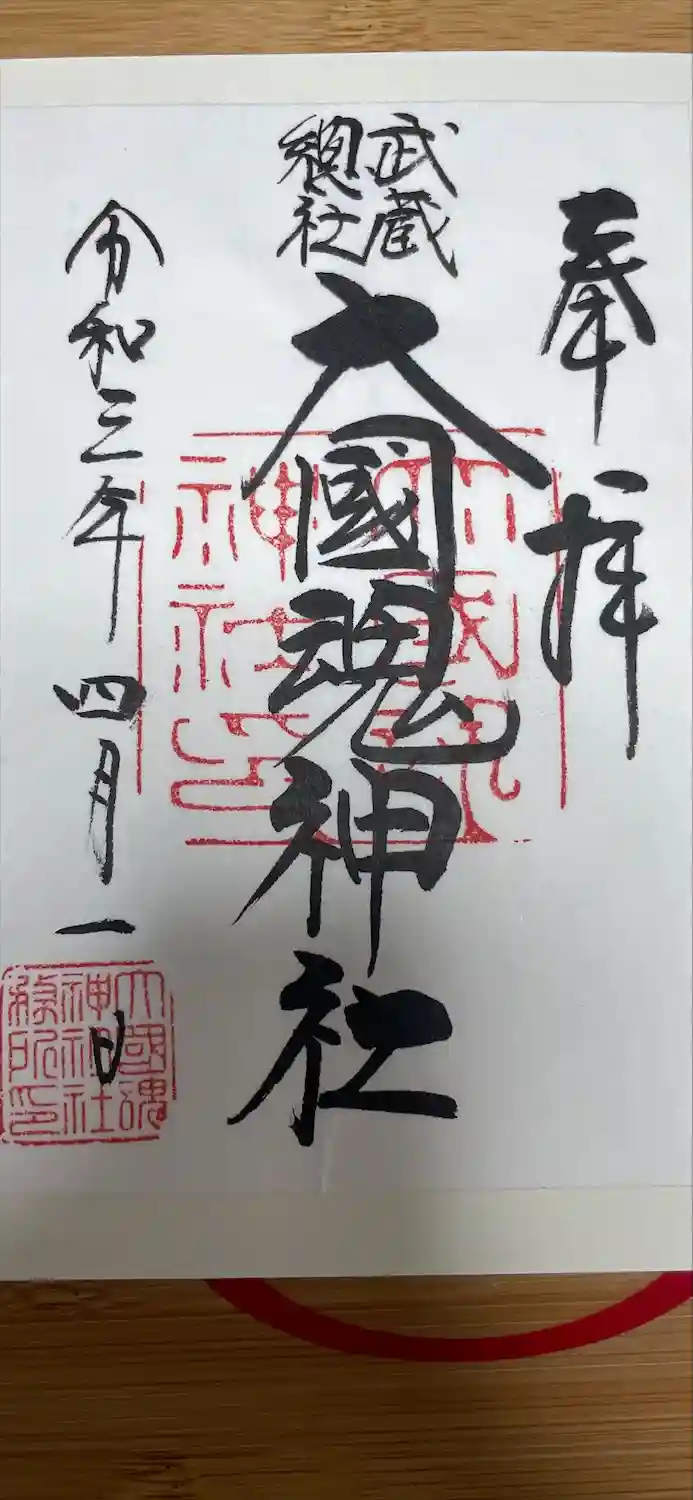 奉拝
武蔵
總社
大國魂神社
令和三年四月一日
大國魂
神社
印
大國魂
神社社
務所印